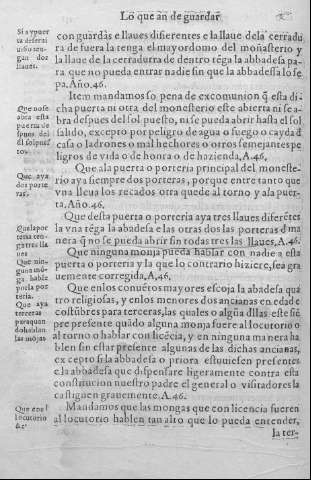 Lo que an de guardar
Si ay puer
ta de fuera
gan dos
llaues.
con guardas e llaues diferentes e la llaue dela cerradu
ra de fuera la tenga el mayordomo del moñasterio y
la llaue de la cerradura de dentro tēga la abbadesa pa
ra que no pueda entrar nadie sin que la abbadessa lo se
pa. Año. 46.
Que no se
abra esta
puerta de
spues del
sol puesto
Item mandamos so pena de excomunion q̄ esta di
cha puerta ni otra del monesterio este abierta ni se a-
bra despues del sol puesto, ni se pueda abrir hasta el sol
salido, excepto por peligro de agua o fuego o cayda d̄
casa o ladrones o mal hechores o otros semejantes pe
ligros de vida o de honra o de hazienda, A. 46.
Que aya
dos porte
ras.
Que ala puerta o porteria principal del moneste-
rio aya siempre dos porteras, porque entre tanto que
vna lleua los recados otra quede al torno y ala puer-
ta. Año. 46.
Que la por
teria ten-
ga tres lla
ues
Que desta puerta o porteria aya tres llaues diferētes
la vna tēga la abadesa e las otras dos las porteras d̄ ma
nera q̄ no se pueda abrir sin todas tres las llaues, A. 46.
Que nin-
guna mō-
ja hable
por la por
teria.
Que ninguna monja pueda hablar con nadie a esta
puerta o porteria y la que lo contrario hiziere, sea gra
uemente corregida, A. 46.
Que aya
terceras
para quan
do hablan
las mōjas
Que enlos conuētos mayores escoja la abadesa qua
tro religiosas, y enlos menores dos ancianas en edad e
costūbres para terceras, las quales o algūa dllas este siē
pre presente quādo alguna monja fuere al locutorio o
al torno o hablar con licēcia, y en ninguna manera ha
blen sin estar presente algunas de las dichas ancianas,
excepto si la abbadesa o priora estuuiesen presentes
e la abbadesa que dispensare ligeramente contra esta
constitucion nuestro padre el general o visitadores la
castiguen grauemente. A. 46.
Que en el
locutorio
Mandamos que las mongas que con licencia fueren
al locutorio hablen tan alto que lo pueda entender,
la ter-